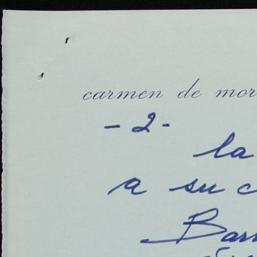 carmen de mor
- 2 -
la
a su c
Barr